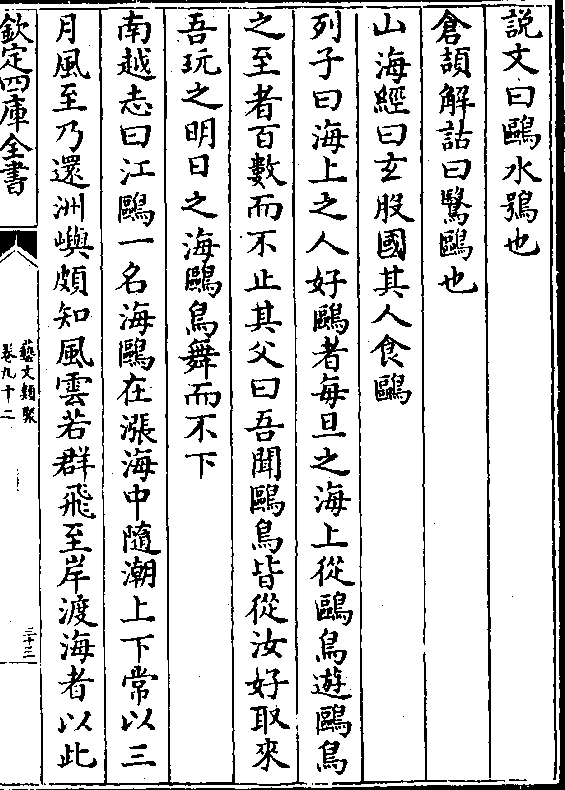 說文曰鷗水鴞也
倉頡解詁曰鷖鷗也
山海經曰玄股國其人食鷗
列子曰海上之人好鷗者每旦之海上從鷗鳥遊鷗鳥
之至者百數而不止其父曰吾聞鷗鳥皆從汝好取來
吾玩之明日之海鷗鳥舞而不下
南越志曰江鷗一名海鷗在漲海中隨潮上下常以三
月風至乃還洲嶼頗知風雲若群飛至岸渡海者以此
欽定四庫全書
藝文類聚
卷九十二
三十三